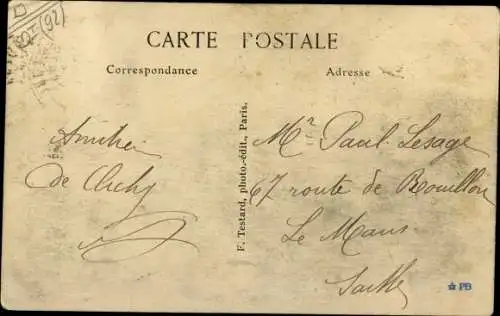 (92)
CARTE POSTALE
Correspondance
Adresse
Amitié
de Clichy
F. Testard, photo.-édit., Paris.
Mr Paul Lesage
67 route de Rouillon
Le Mans
Sarthe
PB